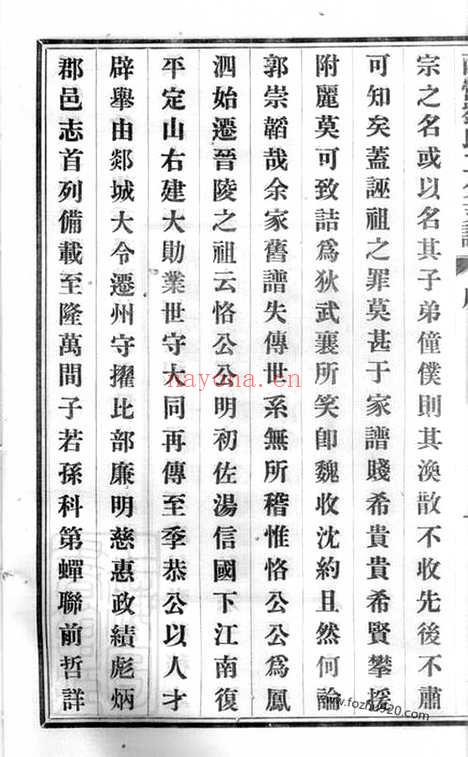 宗之名或以名其子弟僮僕則其渙散不收先後不肅
可知矣蓋誣祖之罪莫甚于家譜賤希貴貴希賢攀援
附麗莫可致詰爲狄武襄所笑卽魏收沈約且然何論
郭崇韜哉余家舊譜失傳世系無所稽惟恪公公爲鳳
泗始遷晉陵之祖云恪公公明初佐湯信國下江南復
平定山右建大勛業世守大同再傳至季恭公以人才
辟舉由郯城大令遷州守擢比部廉明慈惠政績彪炳
郡邑志首列備載至隆萬間子若孫科第蟬聯前哲詳
nayona.cn
www.fozhu920.com